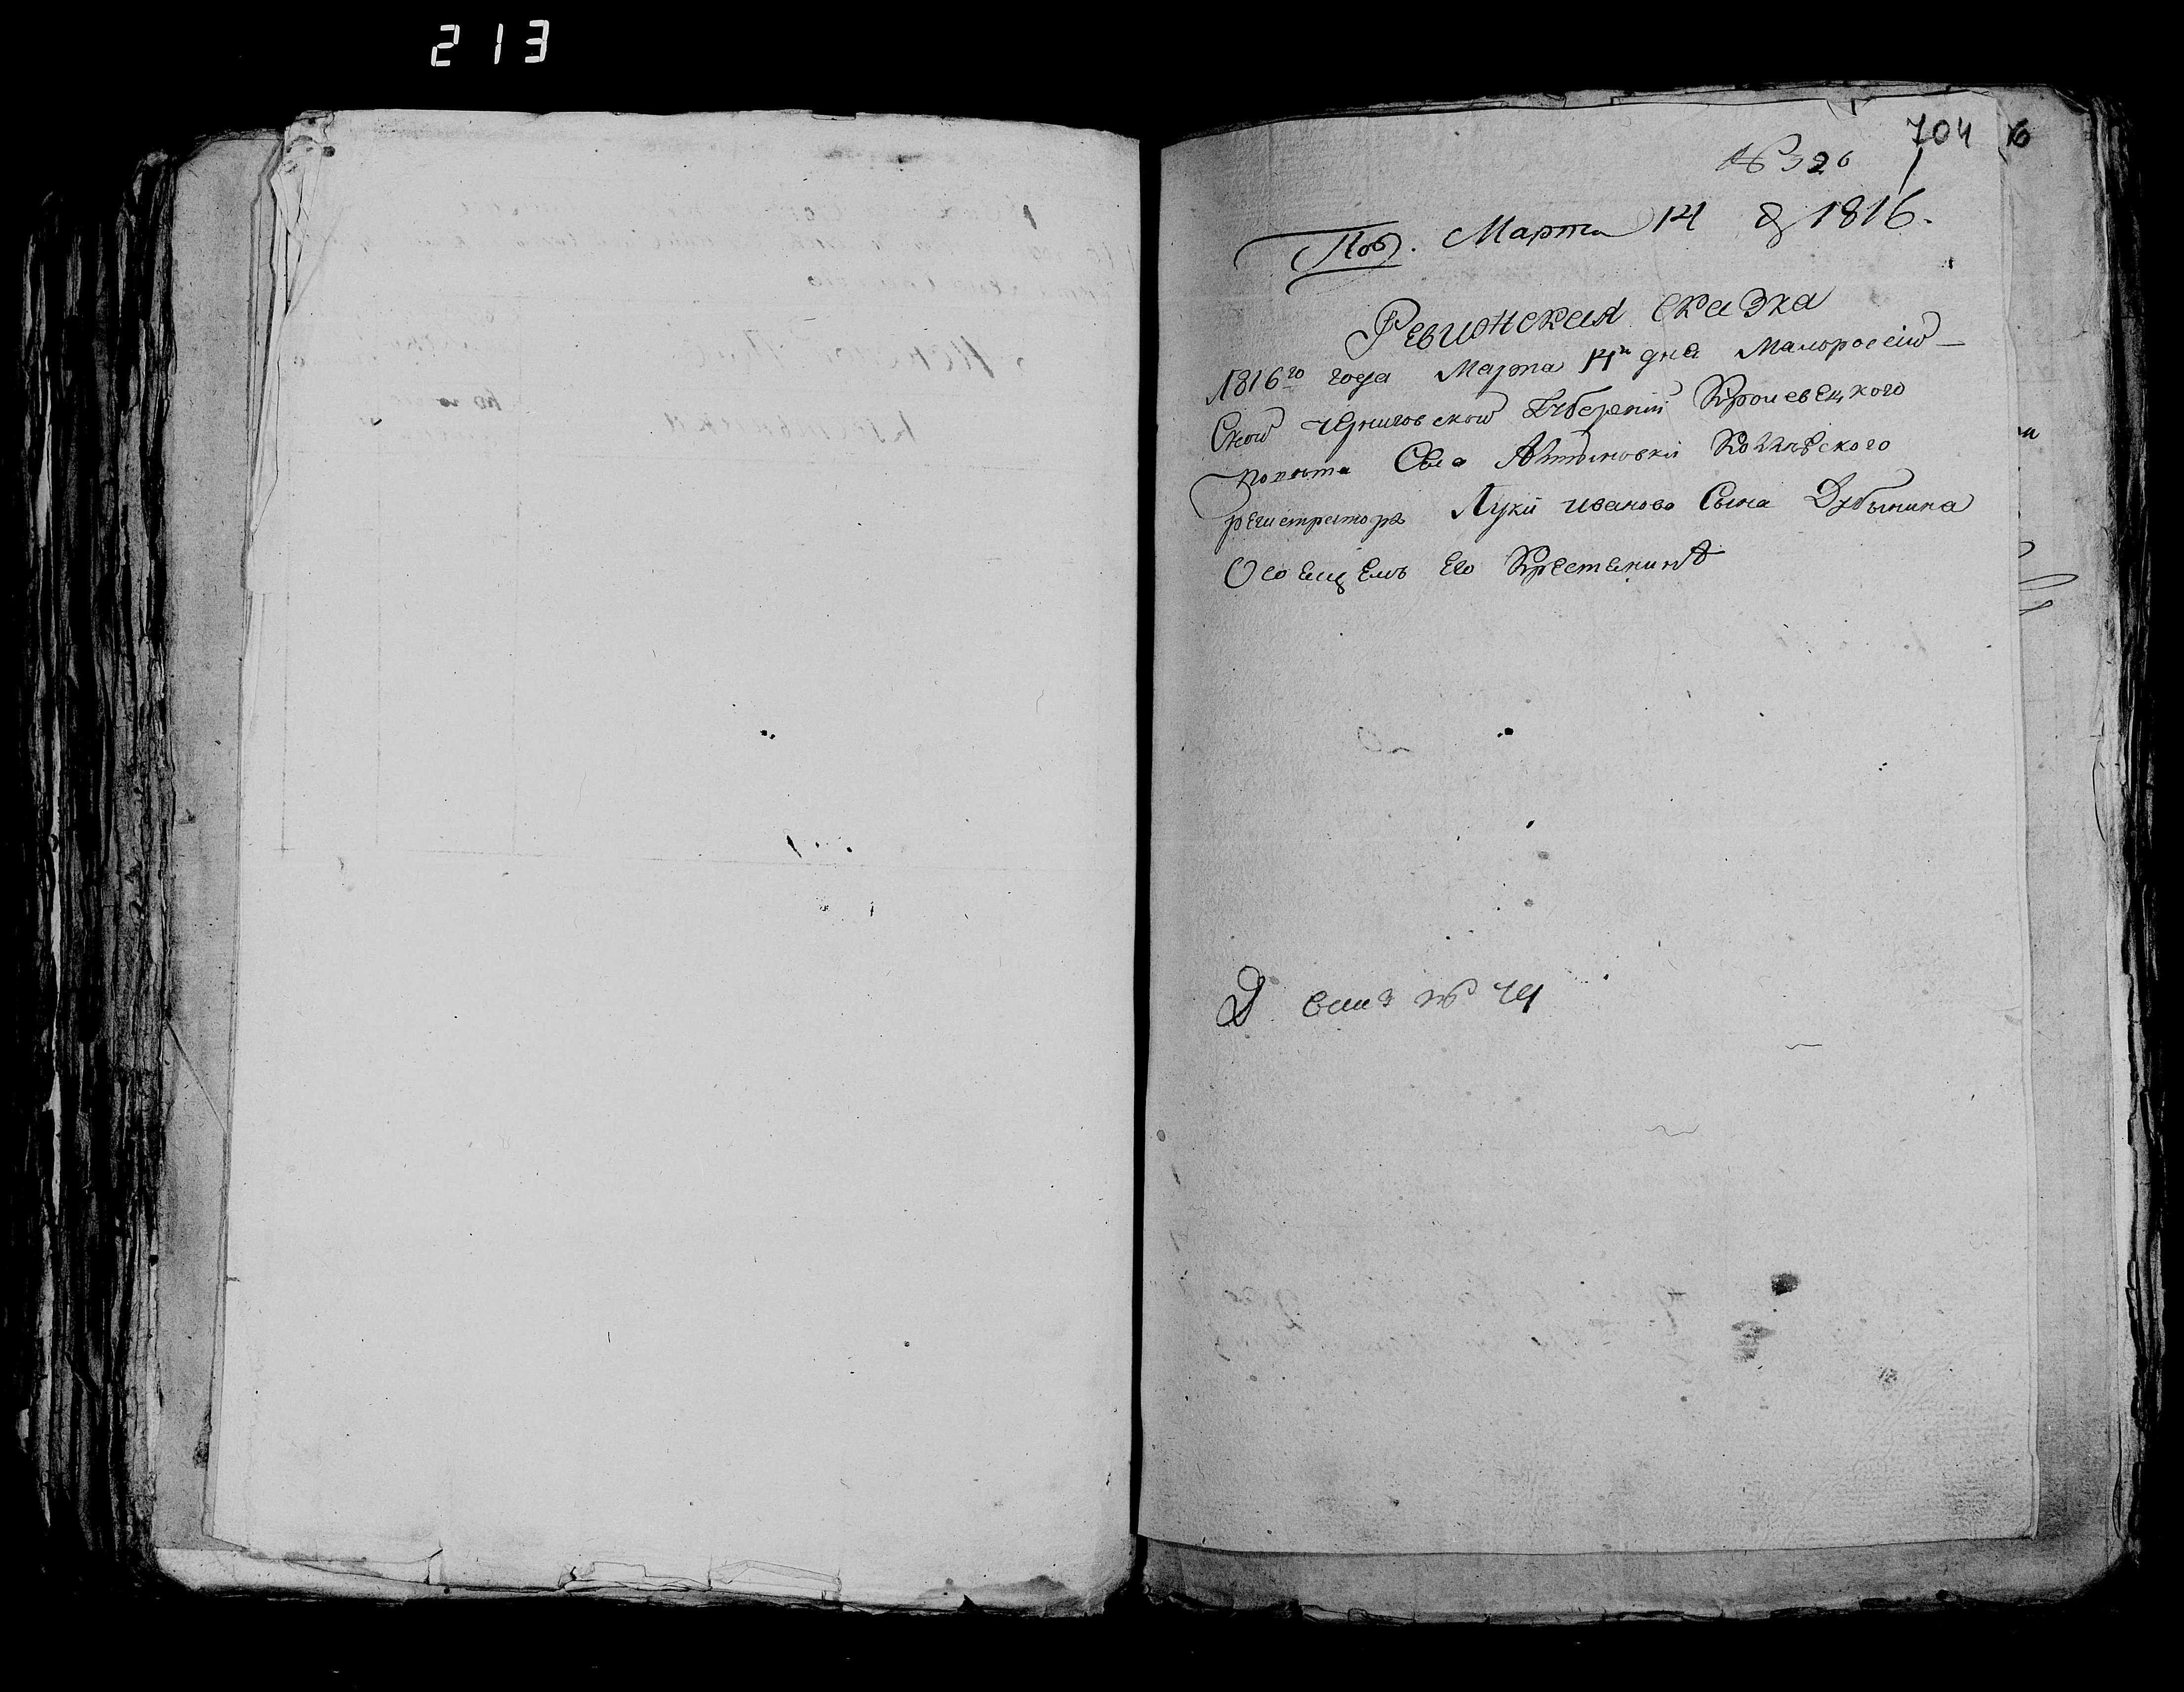 213
704
№ 326
Пол. Марта 14 д 1816.
Ревионская сказка
1816го года Марта 14 дня Малороссій-
Ской Черниговской Губерніи Кролевецкого
повѣта Села Алтыновки Коллѣзского
регистратора Луки иванова Сына Дубынина
О его Крестянинѣ
№ 14